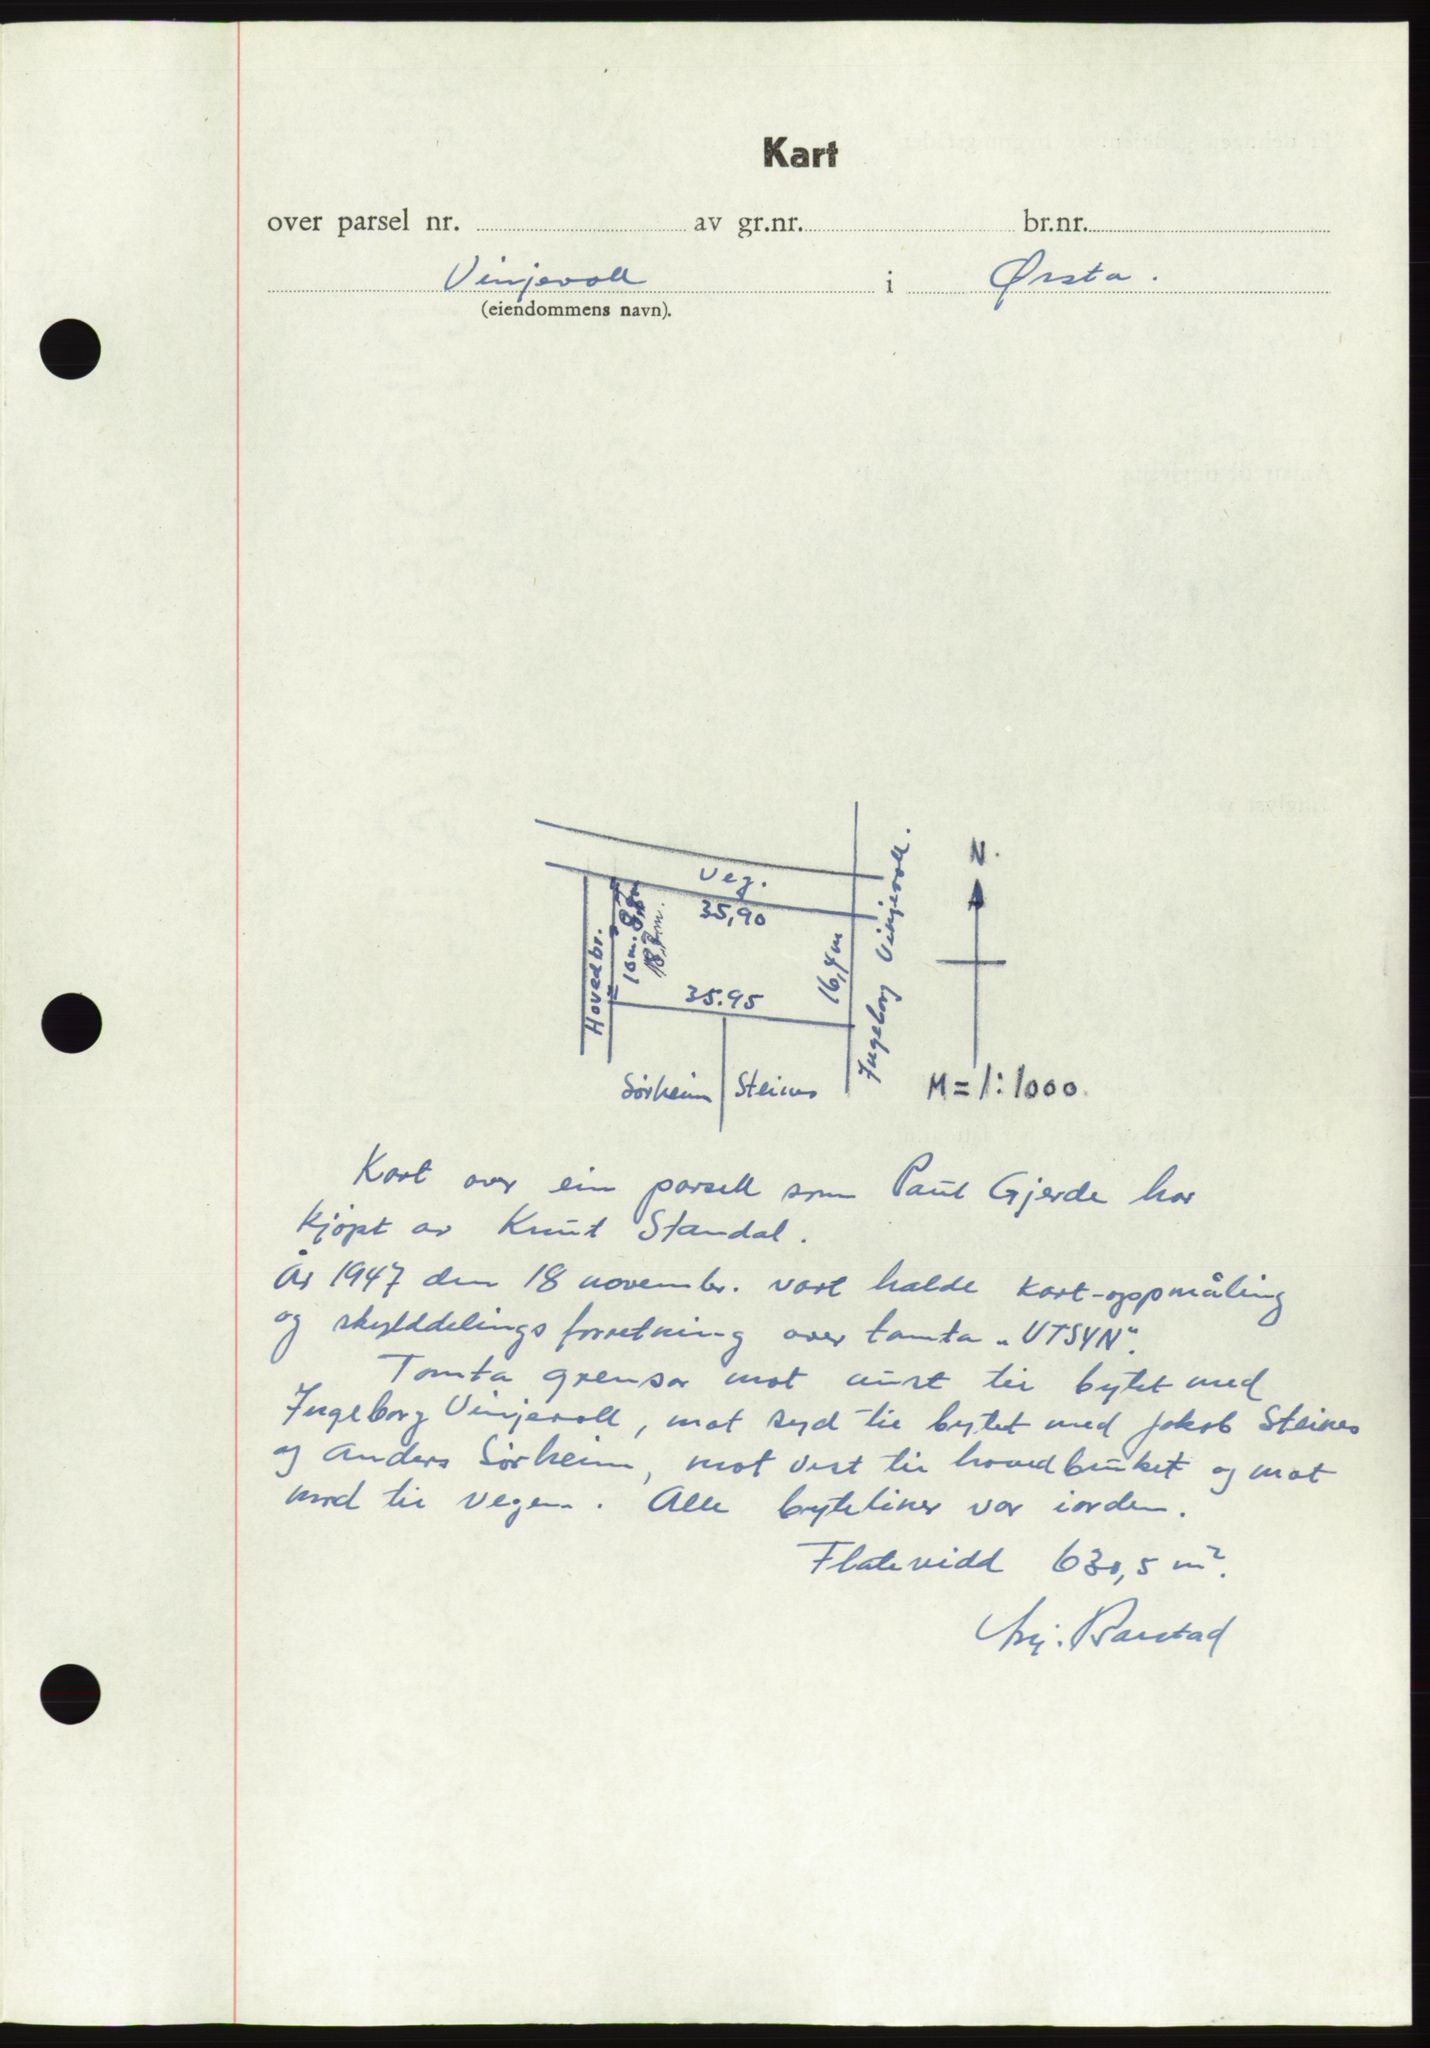 Kart
over parsel nr. av gr.nr. br.nr.
Vinjevoll i Ørsta.
(eiendommens navn).
N.
Veg.
35,90
Hovedbr.
= 10 m.
16,4 m
Ingeborg Vinjevoll.
35.95
Sörheim Steines
M = 1:1000.
Kart over ein parsell som Paul Gjerde har
kjöpt av Knut Standal.
År 1947 den 18 novembr. vart halde kart-oppmåling
og skylddelingsforretning over tomta „UTSYN".
Tomta grensar mot aust til bytet med
Ingeborg Vinjevoll, mot syd til bytet med Jakob Steines
og Anders Sörheim, mot vest til hovedbruket og mot
nord til vegen. Alle byteliner var i orden.
Flatevidd 630,5 m².
Barstad